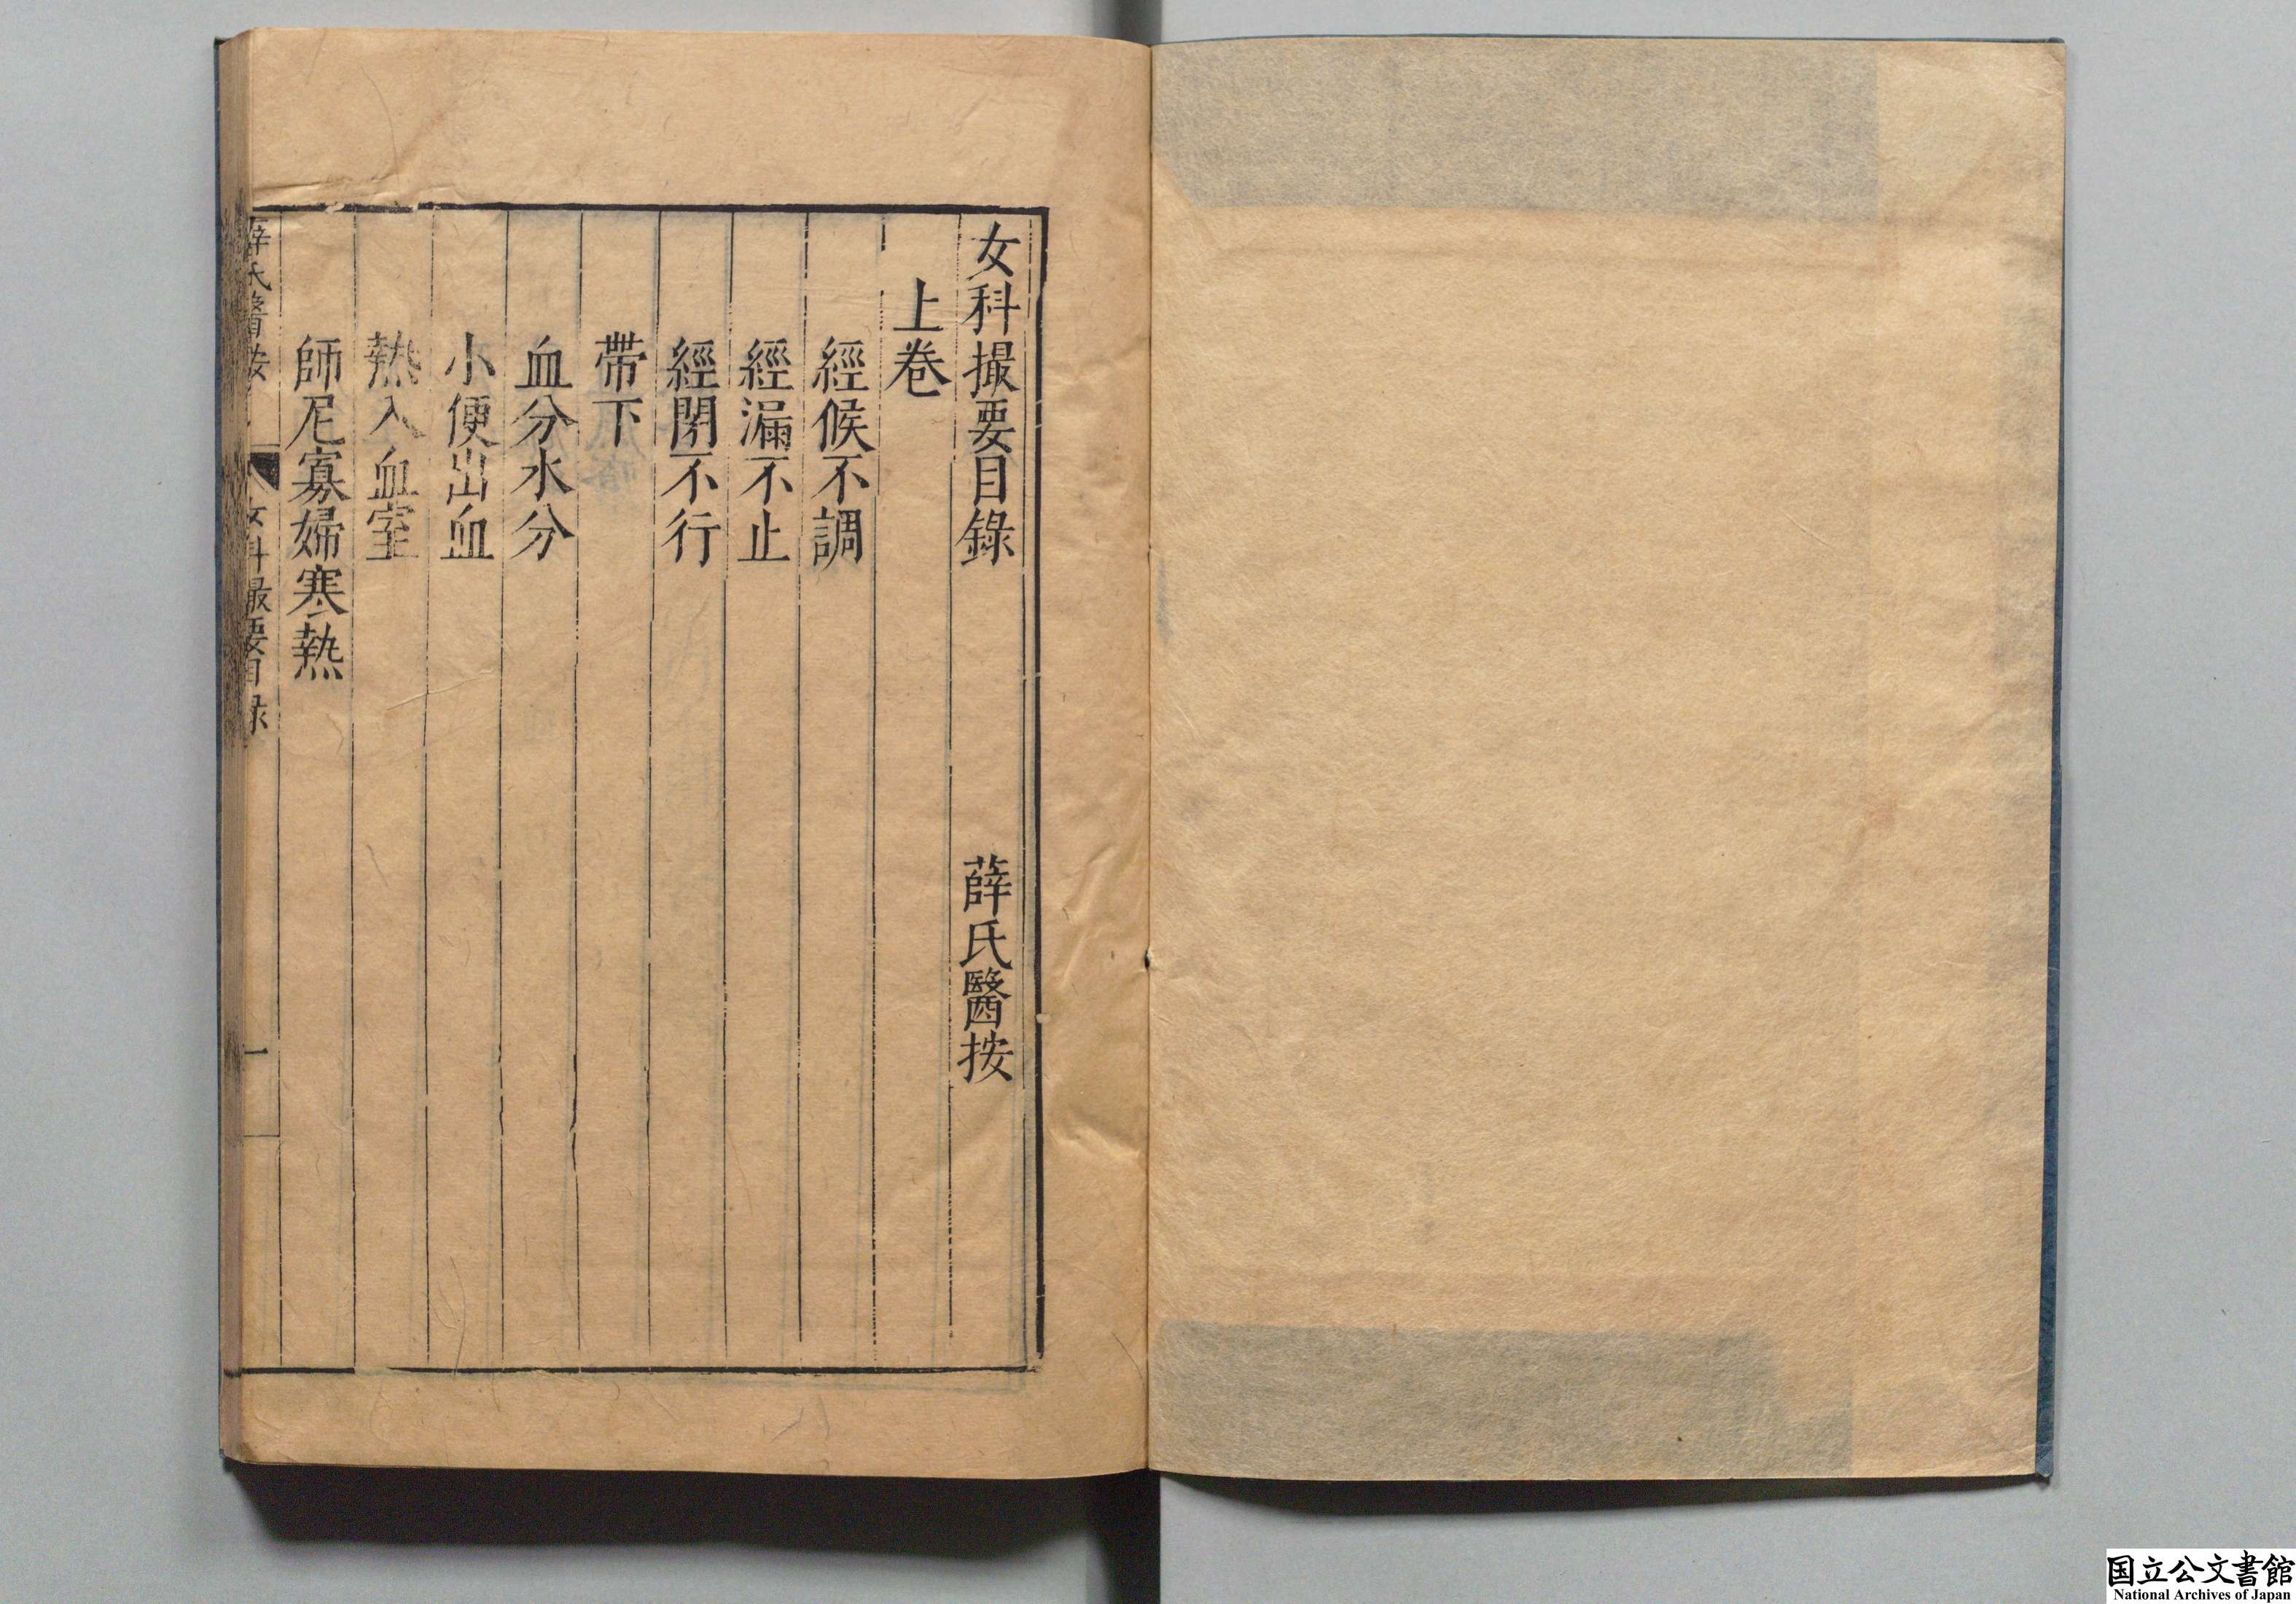 女科撮要目錄 薛氏醫按
上卷
經候不調
經漏不止
經閉不行
帶下
血分水分
小便出血
熱入血室
師尼寡婦寒熱
薛氏醫按 女科撮要目錄 一
国立公文書館
National Archives of Japan